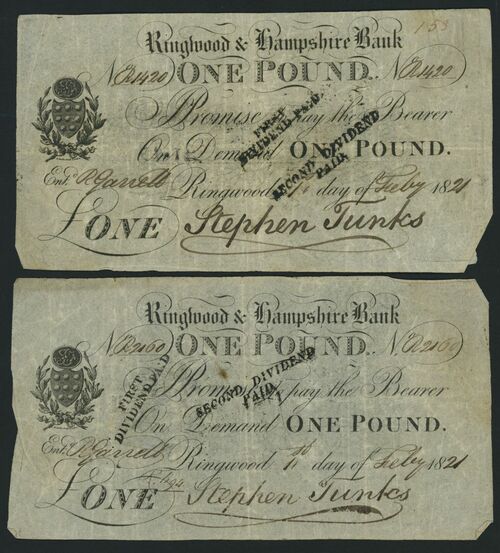 1-53
Ringwood & Hampshire Bank
No. R1420 ONE POUND. No. R1420
I Promise to pay the Bearer
On Demand ONE POUND.
FIRST
DIVIDEND PAID
SECOND DIVIDEND
PAID
Entd. R Garrett Ringwood day of Feby 1821
£ONE Stephen Tunks
Ringwood & Hampshire Bank
No. R2160 ONE POUND. No. R2160
I Promise to pay the Bearer
On Demand ONE POUND.
FIRST
DIVIDEND PAID
SECOND DIVIDEND
PAID
Entd. R Garrett Ringwood day of Feby 1821
£ONE Stephen Tunks